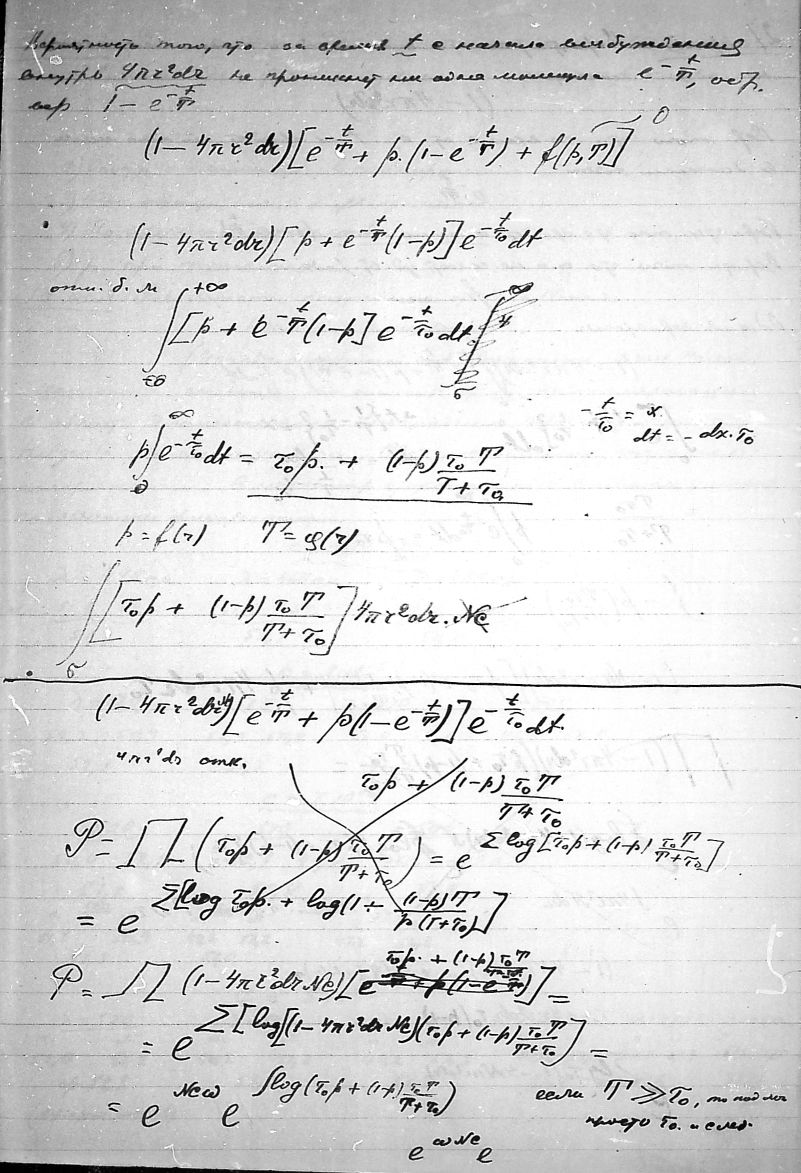 Вероятность того, что за время t с начала возбуждения
внутрь 4πr²dr не проникнет ни одна молекула e^{-t/T},
вер 1 - e^{-t/T}
(1 - 4πr²dr)[e^{-t/T} + p.(1 - e^{-t/T}) + f(p,T)] 0
(1 - 4πr²dr)[p + e^{-t/T}(1-p)]e^{-t/τ₀}dt
∫^{+∞} [p + e^{-t/T}(1-p] e^{-t/τ₀}dt
-t/τ₀ = x.
dt = -dx·τ₀
p∫₀^∞ e^{-t/τ₀}dt = τ₀p. + (1-p) τ₀T/(T+τ₀)
p = f(r) T = φ(r)
∫_σ [τ₀p + (1-p) τ₀T/(T+τ₀)] 4πr²dr.Nc
(1 - 4πr²dr)[e^{-t/T} + p(1 - e^{-t/T})]e^{-t/τ₀}dt.
4πr²dr отк.
τ₀p + (1-p) τ₀T/(T+τ₀)
P = ∏ (τ₀p + (1-p) τ₀T/(T+τ₀)) = e^{Σ log[τ₀p + (1-p) τ₀T/(T+τ₀)]}
= e^{Σ[log τ₀p. + log(1 + (1-p)T/(p(T+τ₀))]}
P = ∏ (1 - 4πr²drNc)[τ₀p. + (1-p) τ₀T/(T+τ₀)] =
= e^{Σ[log[(1 - 4πr²drNc)(τ₀p + (1-p) τ₀T/(T+τ₀)]} =
= e^{Ncω} e^{∫log(τ₀p + (1-p) τ₀T/(T+τ₀))} если T ≫ τ₀, то под
просто τ₀. и след.
e^{ωNc} e